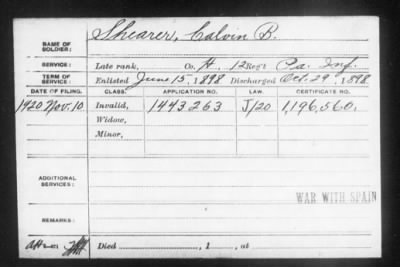 NAME OF SOLDIER: Shearer, Calvin B.
SERVICE: Late rank, Co. H, 12 Reg't Pa. Inf.
TERM OF SERVICE: Enlisted June 15, 1898 Discharged Oct. 29, 1898.
DATE OF FILING. CLASS. APPLICATION NO. LAW. CERTIFICATE NO.
1920 Nov. 10 Invalid, 1443263 J/20 1,196,560.
Widow,
Minor,
ADDITIONAL SERVICES:
WAR WITH SPAIN
REMARKS:
Died , 1 , at